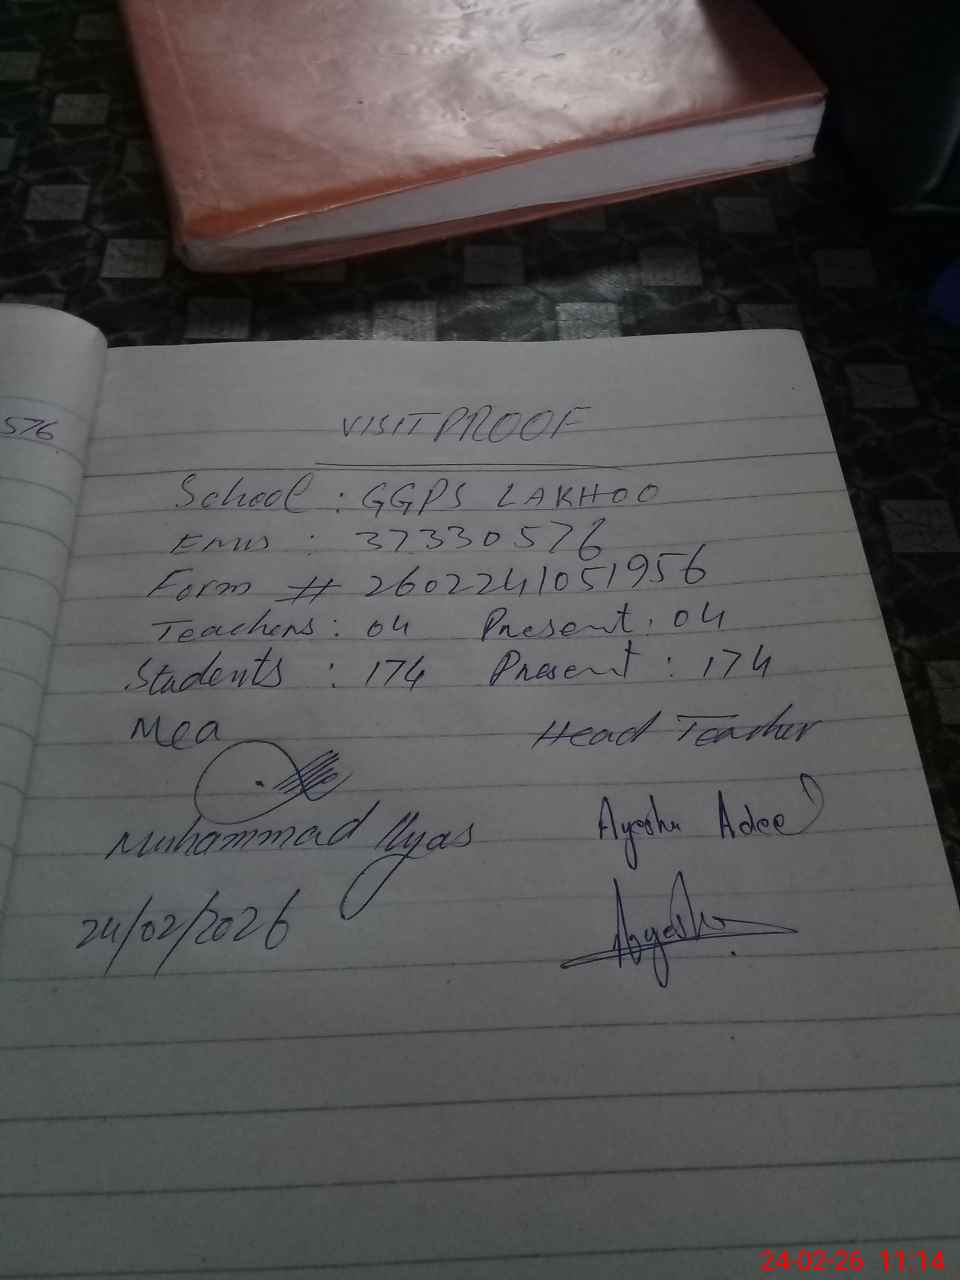 576
VISIT PROOF
School : GGPS LAKHOO
EMIS : 37330576
Form # 2602241051956
Teachers : 04 Present : 04
Students : 174 Present : 174
Mea Head Teacher
Muhammad Ilyas Ayesha Adeel
24/02/2026 Ayesha
24-02-26 11:14